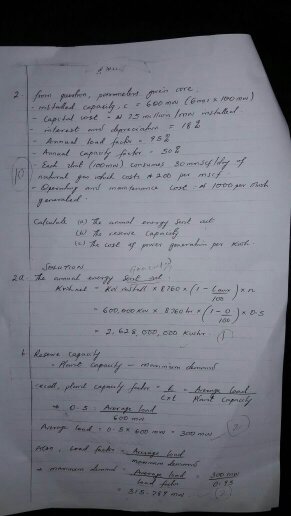 2. From question, parameters given are.
- installed capacity, C = 600mw (6 mos x 100mw)
- Capital cost = ₦ 75 million / mw installed.
- interest and depreciation = 18%
- Annual load factor = 95%
- Annual capacity factor = 50%
- Each unit (100mw) consumes 30 mmscf/day of
natural gas which costs ₦ 200 per mscf.
- Operating and maintenance cost = ₦ 1000 per mwh
generated.
Calculate (a) The annual energy sent out
(b) the reserve capacity
(c) the cost of power generation per kwh.
SOLUTION
2a. The annual energy sent out
= Kw install x 8760 x (1 - /100) x n
= 600,000 Kw x 8760 hr x (1 - 0/100) x 0.5
= 2,628,000,000 Kwhr. 1
b. Reserve capacity
= Plant capacity - maximum demand
recall, plant capacity factor = E / C x t = Average Load / Plant Capacity
⇒ 0.5 = Average load / 600mw
Average load = 0.5 x 600mw = 300mw 2
Also, Load factor = Average load / maximum demand
⇒ maximum demand = Average load / load factor = 300mw / 0.95
= 315.789 mw 2